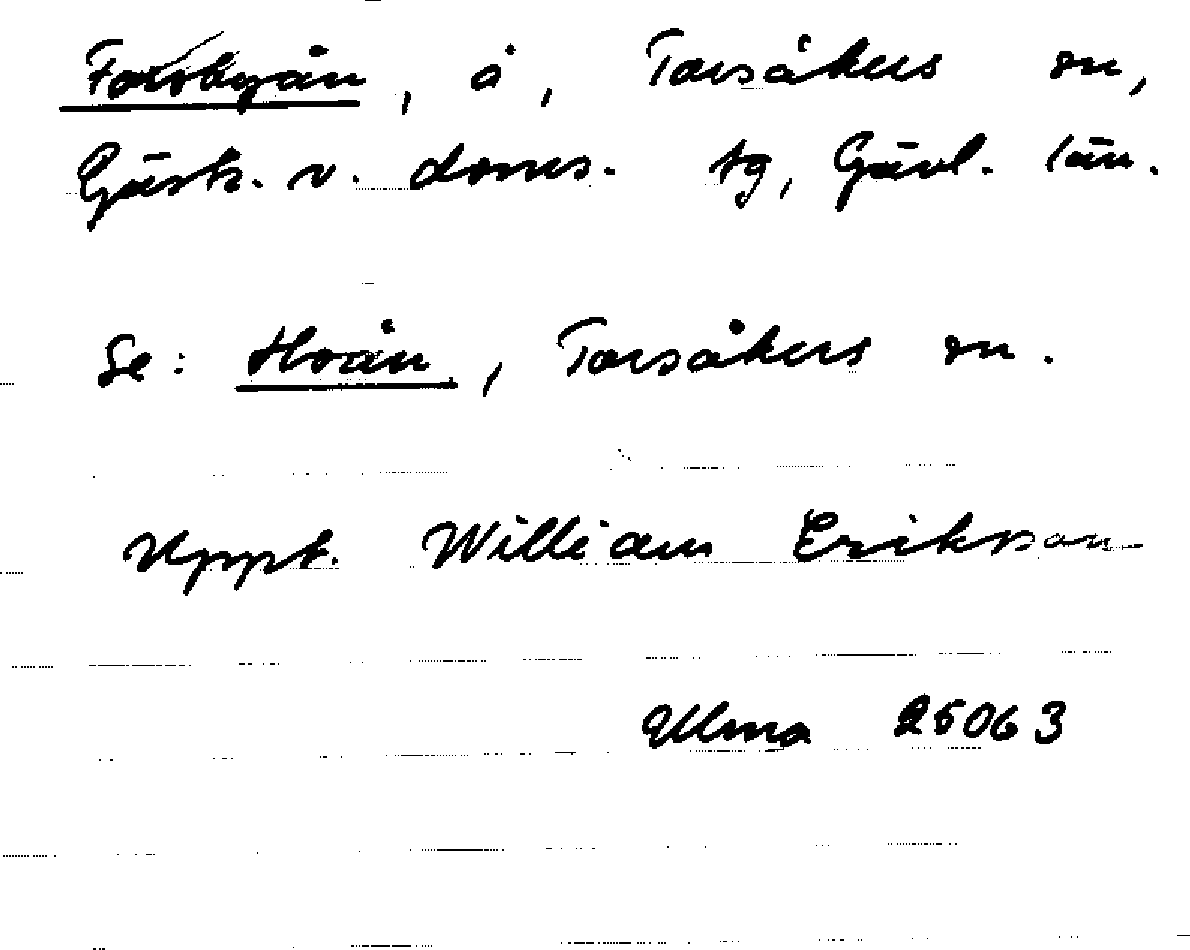 Forsbyån, å, Torsåkers sn,
Gästr. v. doms. tg, Gävl. län.
Se: Hoån, Torsåkers sn.
Uppt. William Eriksson
Ulma 25063